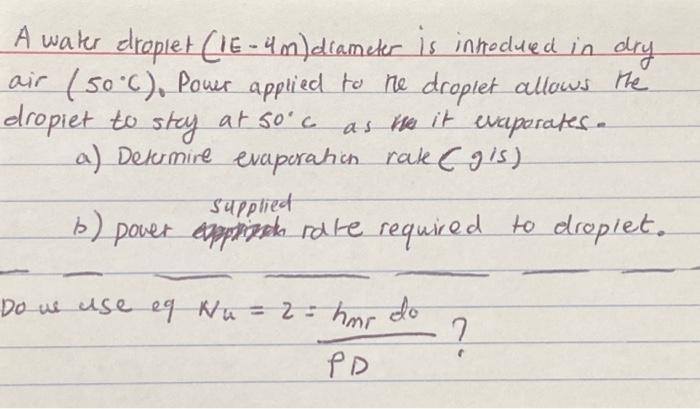 A water droplet (1E-4m) diameter is introdued in dry
air (50°C). Power applied to the droplet allows the
droplet to stay at 50°C as it evaporates.
a) Determine evaporation rate (g/s)
supplied
b) power rate required to droplet.
Do we use eq Nu = 2 = hmr do
ρD ?